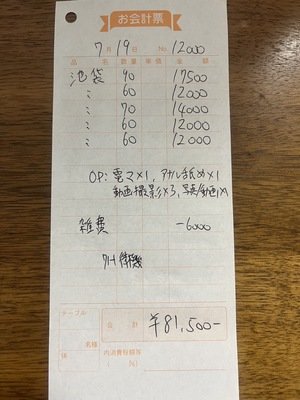 お会計票
7月19日 No. 12000
品名 数量 単価 金額
池袋 90 17500
〃 60 12000
〃 70 14000
〃 60 12000
〃 60 12000
OP: 電マ×1, アナル舐め×1
動画撮影×3, 写真/動画×1
雑費 -6000
待機
テーブル
名様
係
合計 ¥81,500-
内消費税額等
( %)